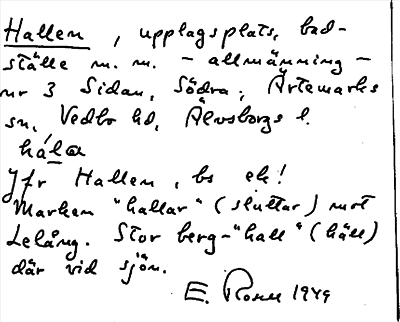 Hallen, upplagsplats, bad-
ställe m. m. - allmänning -
nr 3 Sidan, Södra, Ärtemarks
sn, Vedbo hd, Älvsborgs l.
hála
Jfr Hallen, bs ek!
Marken "hallar" (sluttar) mot
Lelång. Stor berg-"hall" (häll)
där vid sjön.
E. Rosell 1949